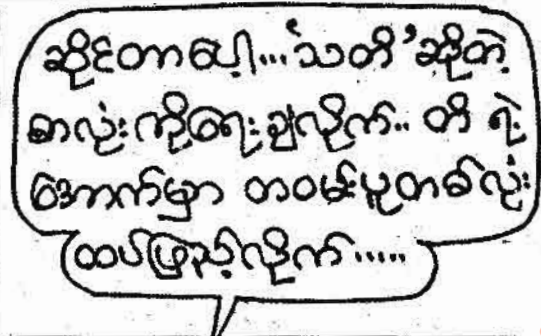 ဆိုင်တာပေါ့...‘သတိ’ဆိုတဲ့
စာလုံးကိုရေးချလိုက်.. တိ ရဲ့
အောက်မှာ တဝမ်းပူတစ်လုံး
ထပ်ဖြည့်လိုက်.....